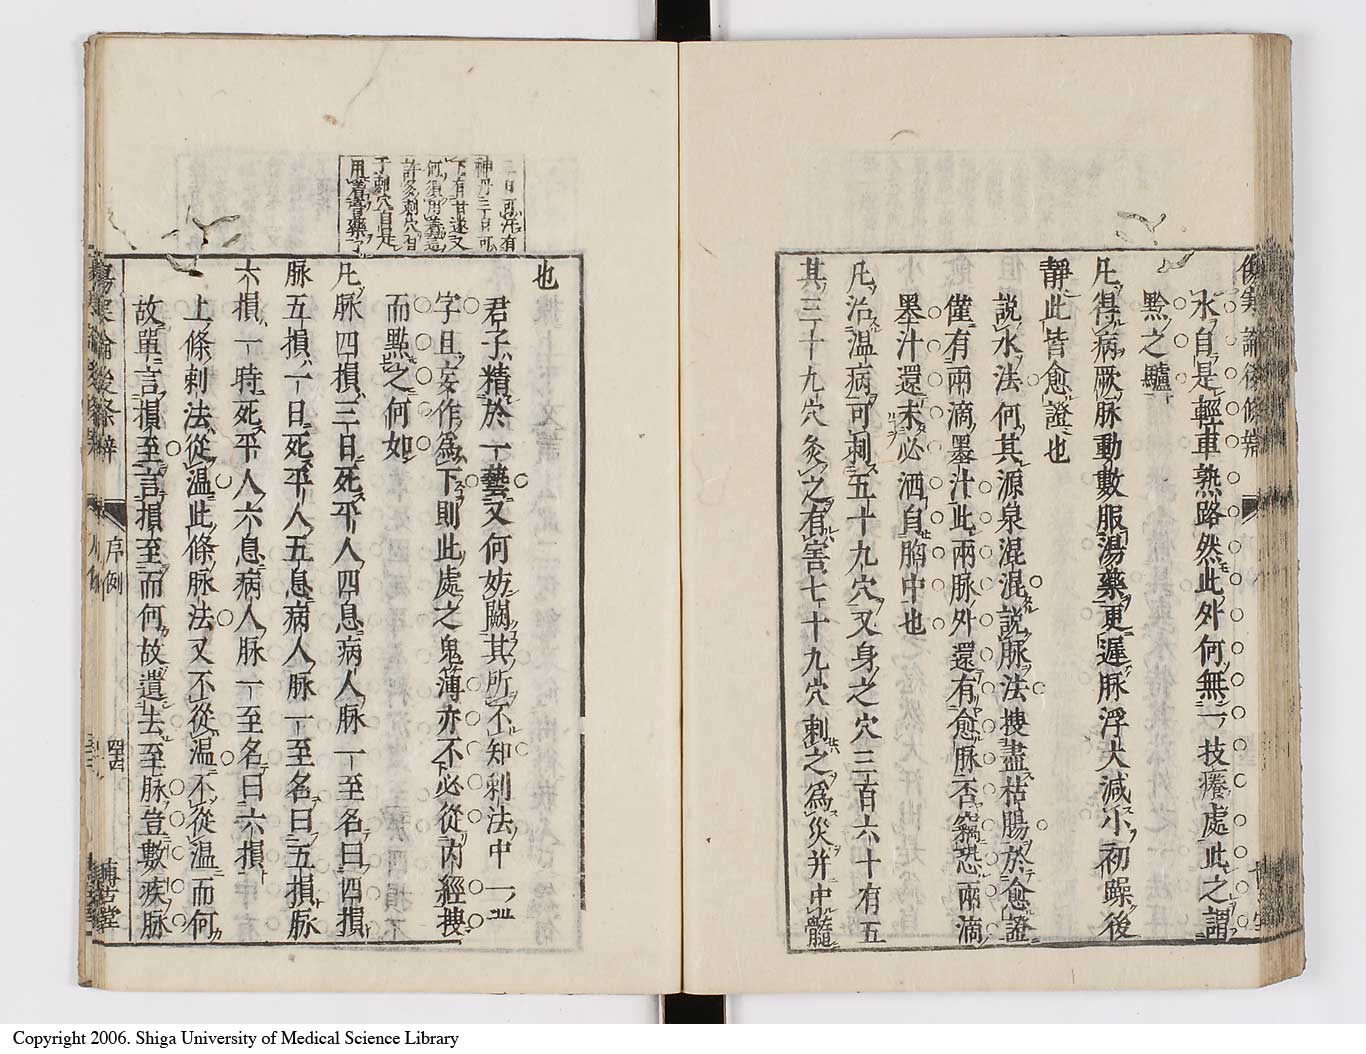 傷寒論後條辨
水自是輕車熟路然此外何無一技癢處此之謂
黔之驢
凡得病厥脉動數服湯藥更遲脉浮大減小初躁後
靜此皆愈證也
說水法何其源泉混混說脉法搜盡枯腸於愈證
僅有兩滴墨汁此兩脉外還有愈脉否竊恐兩滴
墨汁還未必洒自胸中也
凡治温病可刺五十九穴又身之穴三百六十有五
其三十九穴灸之有害七十九穴刺之為災并中髓
也
君子精於一藝又何妨闕其所不知刺法中一
字且妄作為下則此處之鬼薄亦不必從内經搜
而點之何如
凡脉四損三日死平人四息病人脉一至名曰四損
脉五損一日死平人五息病人脉一至名曰五損脉
六損一時死平人六息病人脉一至名曰六損
上條刺法從温此條脉法又不從温不從温而何
故單言損至言損至而何故遺去至脉豈數疾脉
三日可汗有
神丹三日可
下有甘遂又
何須用着這
許多刺穴有
于刺穴自是
用着湯藥了
傷寒論後條辨
序例
博古堂
Copyright 2006. Shiga University of Medical Science Library